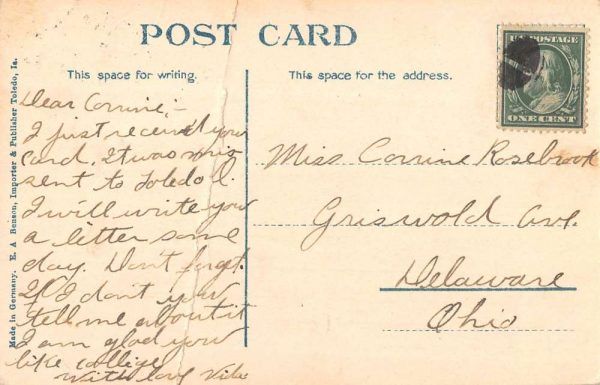 POST CARD
This space for writing.
This space for the address.
U.S. POSTAGE
ONE CENT
Made in Germany. E. A Benson, Importer & Publisher Toledo, Ia.
Dear Corrine,-
I just received your
card. It was mis
sent to Toledo O.
I will write you
a letter some
day. Don't forget.
If I don't you
tell me about it
I am glad you
like college
With love
Miss Corrine Rosebrook
Griswold Ave.
Delaware
Ohio